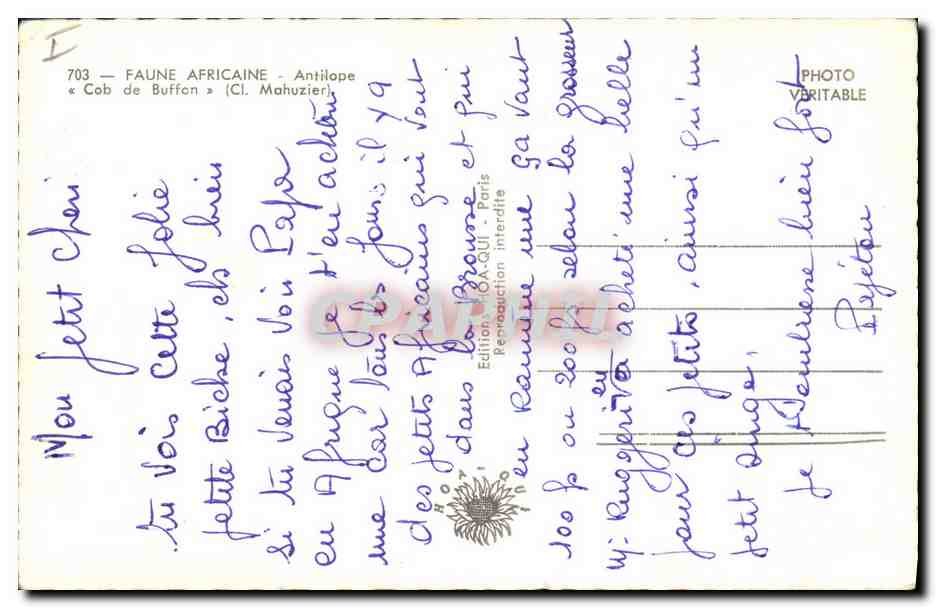 703 — FAUNE AFRICAINE - Antilope
« Cob de Buffon » (Cl. Mahuzier)
PHOTO
VERITABLE
Editions HOA-QUI - Paris
Reproduction interdite
HOA QUI
CPARAMA
Mon petit cheri
tu vois cette jolie
petite Biche, ch bien
si tu venais voir Papa
en Afrique je t'en achète
une car tous les jours il y a
des petits Africains qui vont
dans la Brousse et qui
en ramène une ça vaut
100 f ou 200 f selon la grosseur
Mr Ruggeri en a acheté une belle
pour ces petits, ainsi qu'un
petit singe.
je t'embrasse bien fort